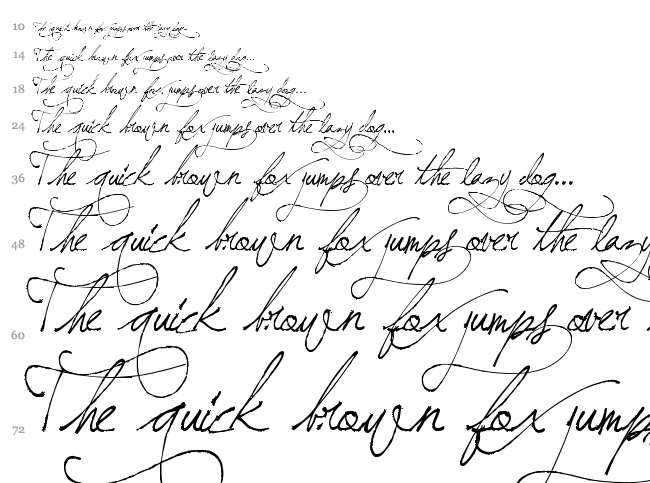 10 The quick brown fox jumps over the lazy dog...
14 The quick brown fox jumps over the lazy dog...
18 The quick brown fox jumps over the lazy dog...
24 The quick brown fox jumps over the lazy dog...
36 The quick brown fox jumps over the lazy dog...
48 The quick brown fox jumps over the lazy
60 The quick brown fox jumps over
72 The quick brown fox jump